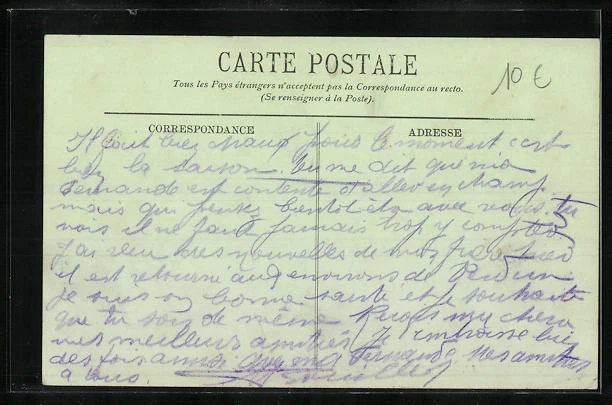 CARTE POSTALE
10 €
Tous les Pays étrangers n'acceptent pas la Correspondance au recto.
(Se renseigner à la Poste).
CORRESPONDANCE
ADRESSE
Il fait chaud pour le moment c'est
bien la saison. Tu me dit que
est contente d'aller en champ
mais qui bientôt avec vous. tu
vois il ne faut jamais trop y compter
J'ai des nouvelles de
il est retourné aux environs de
je suis en bonne santé et je souhaite
que tu sois de même Reçois my chere
mes meilleurs amitiés Je embrasse bien
des fois ainsi Fernande. Mes amitiés
a tous.